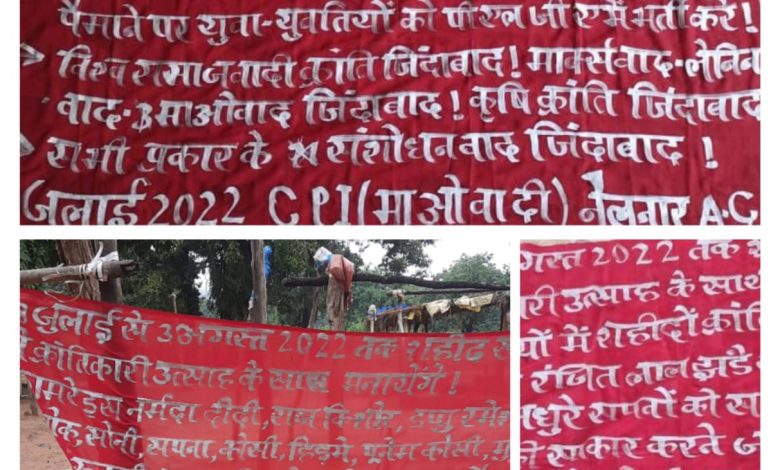 पैमाने पर युवा-युवतियों को पीएलजीए में भर्ती करे!
विश्व समाजवादी क्रांति जिंदाबाद! मार्क्सवाद-लेनिन
वाद-उमाओवाद जिंदाबाद! कृषि क्रांति जिंदाबाद
सभी प्रकार के संशोधनवाद जिंदाबाद!
जुलाई 2022 CPI (माओवादी) नेलनार A.C
जुलाई से 3 अगस्त 2022 तक शहीद
क्रांतिकारी उत्साह के साथ मनायेंगे!
हमारे इस नर्मदा दीदी, राज किशोर, डप्पु रमेश
सोनी, सपना, कोसी, हिड़मे, पूनेम कोसी, मु
गस्त 2022 तक
कारी उत्साह के साथ
यों में शहीदों क्रांति
रंजित लाल झंडे
धुरे सपनों को सा
साकार करने